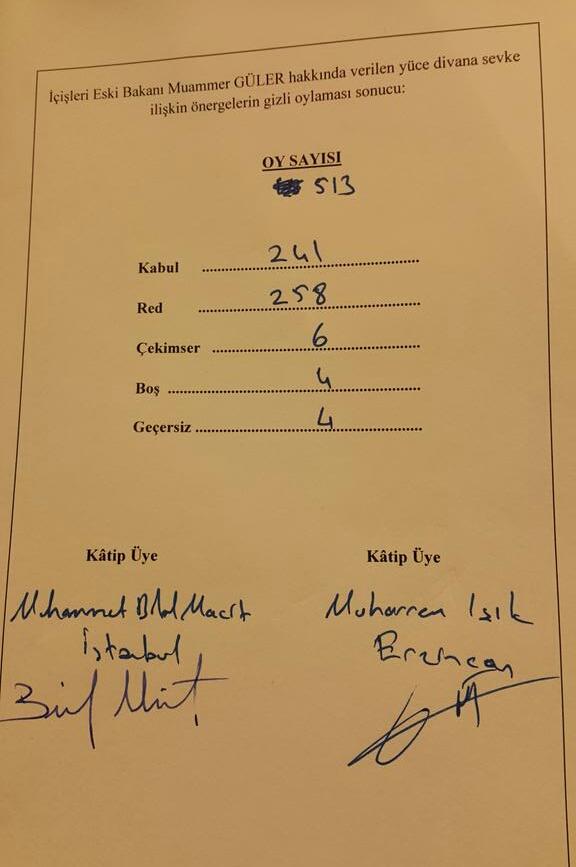 İçişleri Eski Bakanı Muammer GÜLER hakkında verilen yüce divana sevke
ilişkin önergelerin gizli oylaması sonucu:
OY SAYISI
513
Kabul ........ 241 ........
Red ........ 258 ........
Çekimser ........ 6 ........
Boş ........ 4 ........
Geçersiz ........ 4 ........
Kâtip Üye Kâtip Üye
Muhammet Bilal Macit Muharrem Işık
İstanbul Erzincan